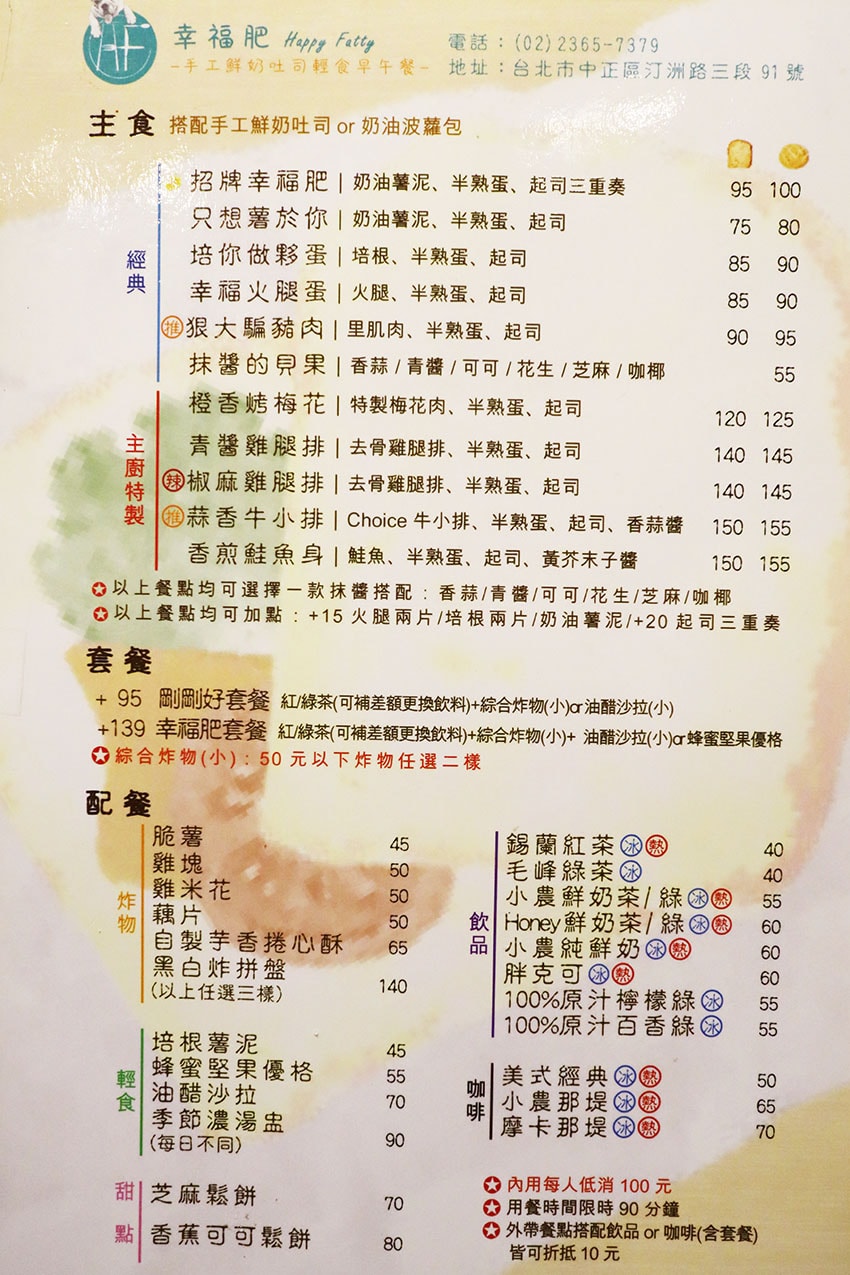 幸福肥 Happy Fatty
-手工鮮奶吐司輕食早午餐-
電話：(02)2365-7379
地址：台北市中正區汀洲路三段 91 號
主食 搭配手工鮮奶吐司 or 奶油波蘿包
經典
招牌幸福肥 | 奶油薯泥、半熟蛋、起司三重奏 95 100
只想薯於你 | 奶油薯泥、半熟蛋、起司 75 80
培你做夥蛋 | 培根、半熟蛋、起司 85 90
幸福火腿蛋 | 火腿、半熟蛋、起司 85 90
推 狠大騙豬肉 | 里肌肉、半熟蛋、起司 90 95
抹醬的貝果 | 香蒜 / 青醬 / 可可 / 花生 / 芝麻 / 咖椰 55
主廚特製
橙香烤梅花 | 特製梅花肉、半熟蛋、起司 120 125
青醬雞腿排 | 去骨雞腿排、半熟蛋、起司 140 145
辣 椒麻雞腿排 | 去骨雞腿排、半熟蛋、起司 140 145
推 蒜香牛小排 | Choice 牛小排、半熟蛋、起司、香蒜醬 150 155
香煎鮭魚身 | 鮭魚、半熟蛋、起司、黃芥末子醬 150 155
✪以上餐點均可選擇一款抹醬搭配：香蒜/青醬/可可/花生/芝麻/咖椰
✪以上餐點均可加點：+15 火腿兩片/培根兩片/奶油薯泥/+20 起司三重奏
套餐
+ 95 剛剛好套餐 紅/綠茶(可補差額更換飲料)+綜合炸物(小)or油醋沙拉(小)
+139 幸福肥套餐 紅/綠茶(可補差額更換飲料)+綜合炸物(小)+ 油醋沙拉(小)or蜂蜜堅果優格
✪綜合炸物(小)：50 元以下炸物任選二樣
配餐
炸物
脆薯 45
雞塊 50
雞米花 50
藕片 50
自製芋香捲心酥 65
黑白炸拼盤
(以上任選三樣) 140
輕食
培根薯泥 45
蜂蜜堅果優格 55
油醋沙拉 70
季節濃湯盅
(每日不同) 90
甜點
芝麻鬆餅 70
香蕉可可鬆餅 80
飲品
錫蘭紅茶 冰 熱 40
毛峰綠茶 冰 40
小農鮮奶茶/綠 冰 熱 55
Honey鮮奶茶/綠 冰 熱 60
小農純鮮奶 冰 熱 60
胖克可 冰 熱 60
100%原汁檸檬綠 冰 55
100%原汁百香綠 冰 55
咖啡
美式經典 冰 熱 50
小農那堤 冰 熱 65
摩卡那堤 冰 熱 70
✪內用每人低消 100 元
✪用餐時間限時 90 分鐘
✪外帶餐點搭配飲品 or 咖啡(含套餐)
皆可折抵 10 元